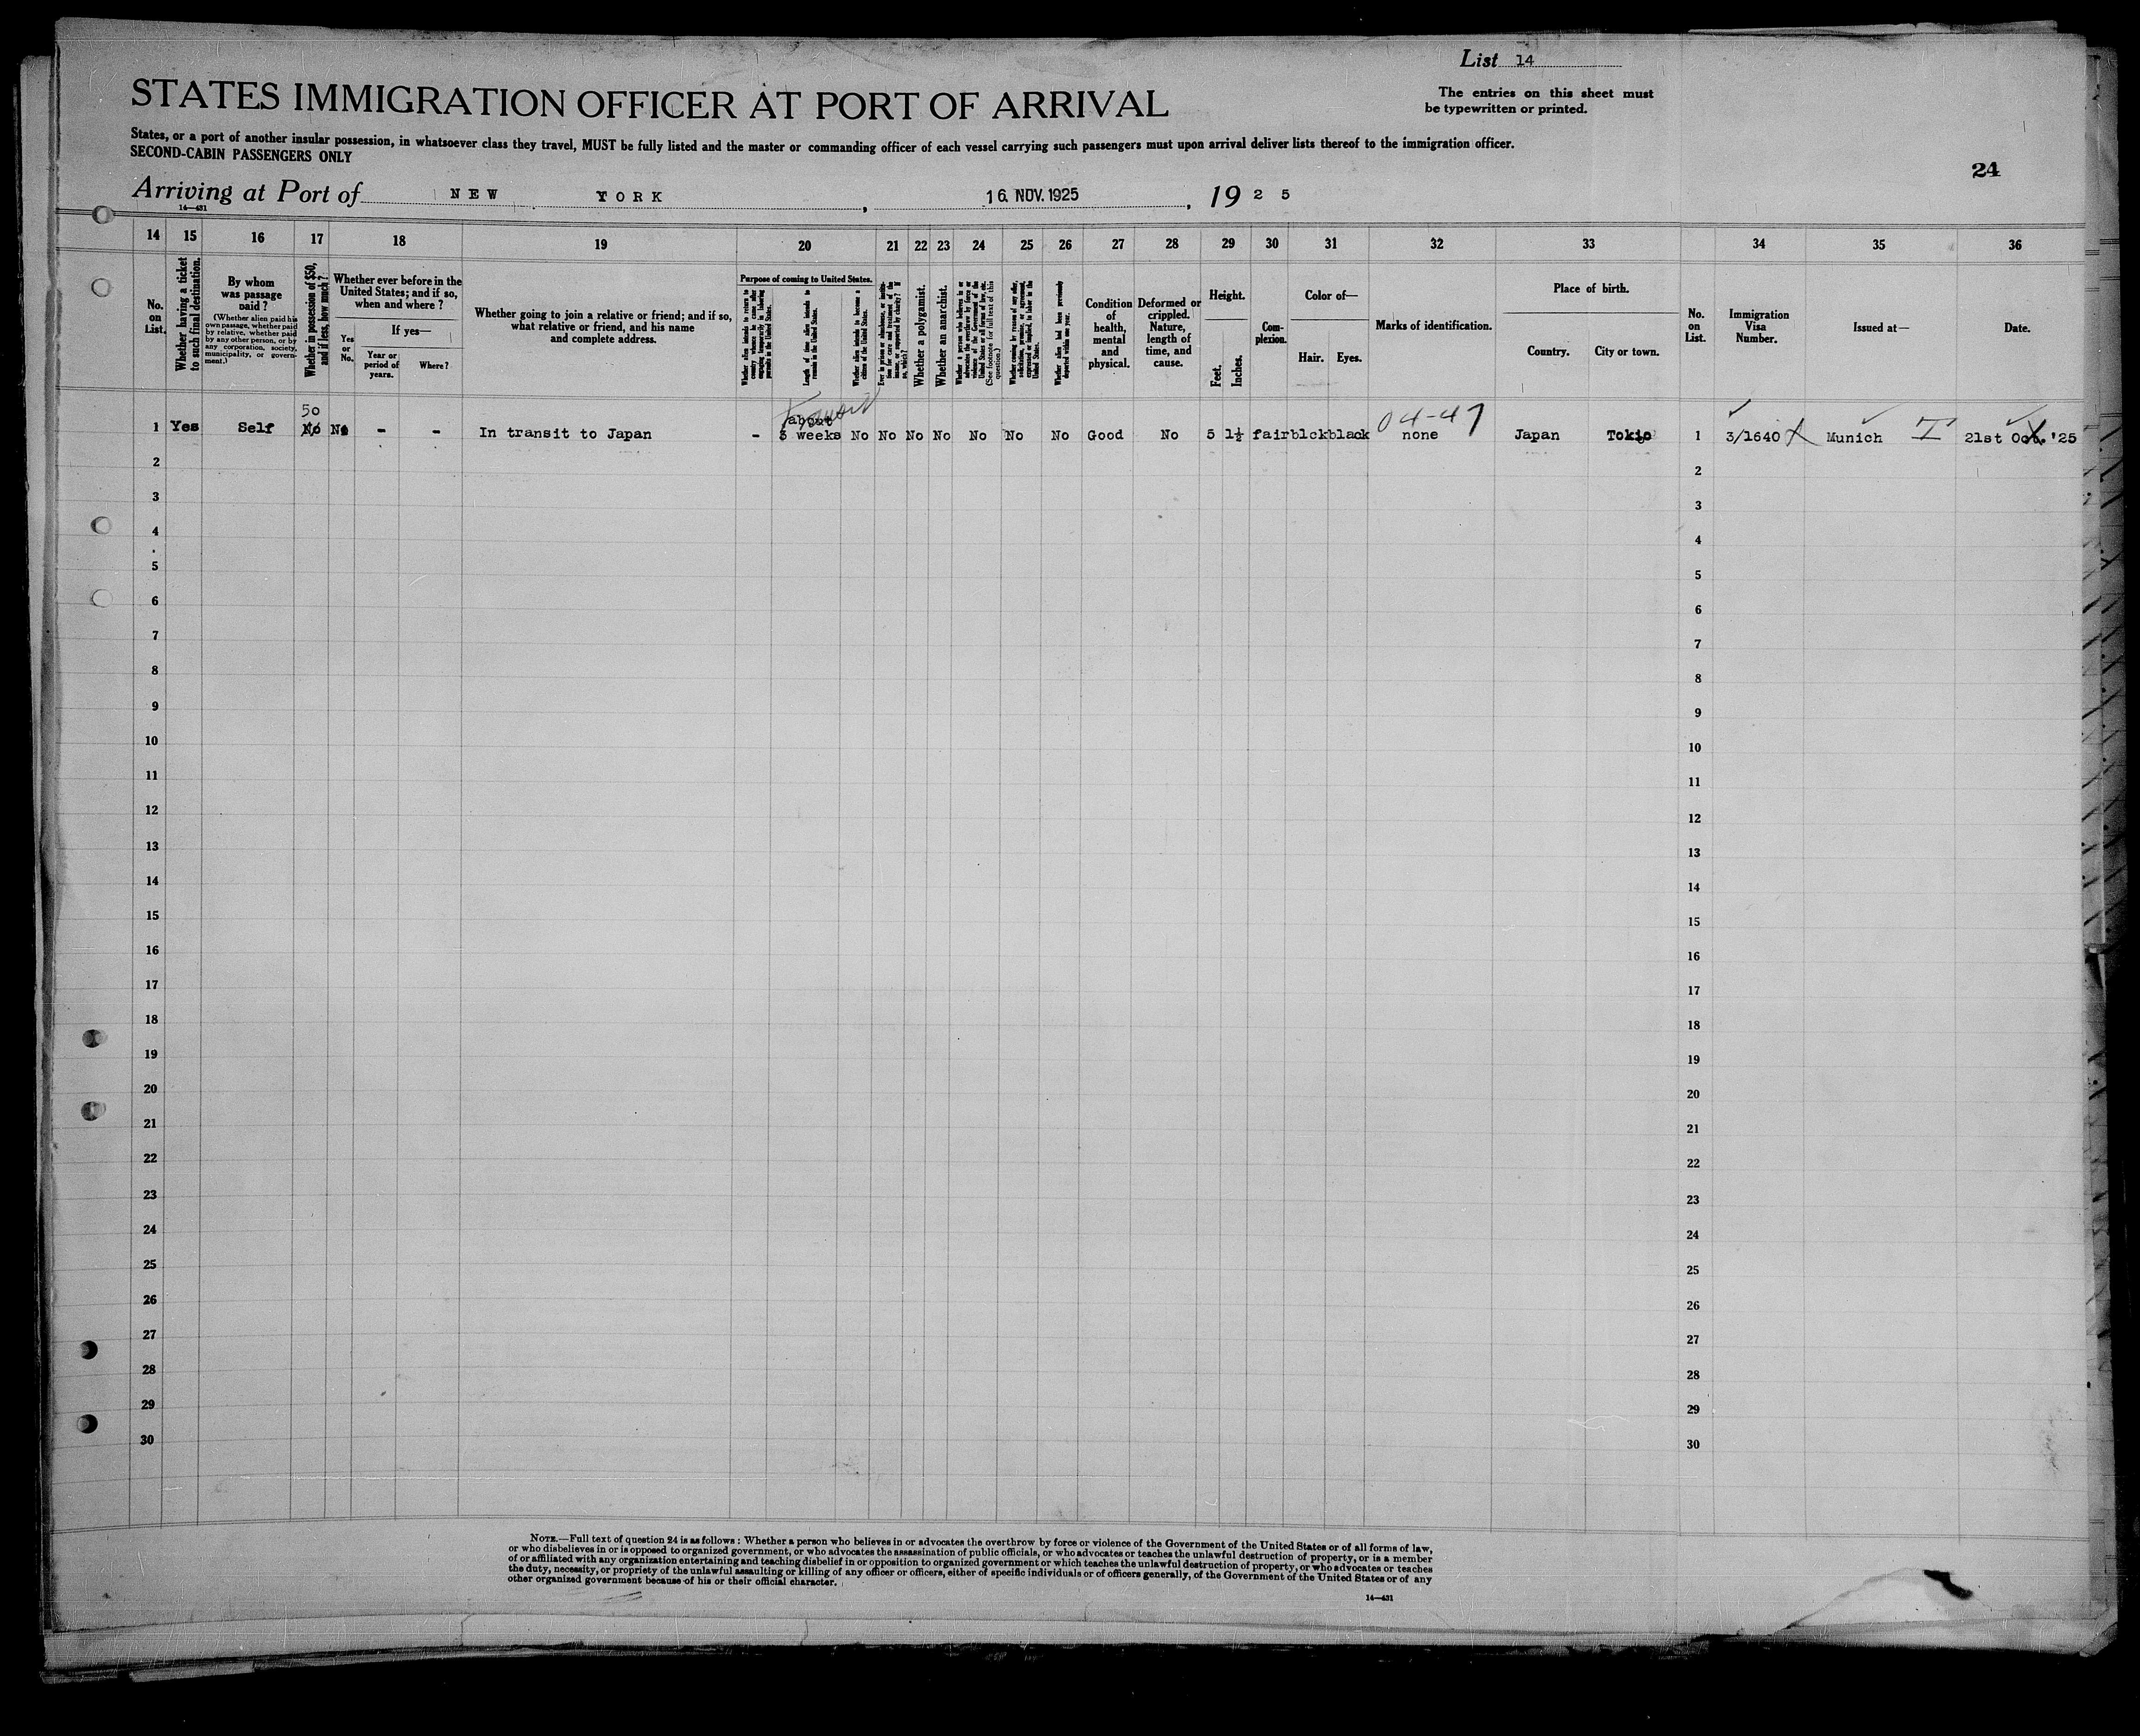 List 14
STATES IMMIGRATION OFFICER AT PORT OF ARRIVAL
The entries on this sheet must
be typewritten or printed.
States, or a port of another insular possession, in whatsoever class they travel, MUST be fully listed and the master or commanding officer of each vessel carrying such passengers must upon arrival deliver lists thereof to the immigration officer.
SECOND-CABIN PASSENGERS ONLY
24
Arriving at Port of NEW YORK, 16. NOV. 1925, 19 2 5
14—431
14 15 16 17 18 19 20 21 22 23 24 25 26 27 28 29 30 31 32 33 34 35 36
No. on List.
Whether having a ticket to such final destination.
By whom was passage paid?
(Whether alien paid his own passage, whether paid by relative, whether paid by any other person, or by any corporation, society, municipality, or government.)
Whether in possession of $50, and if less, how much?
Whether ever before in the United States; and if so, when and where?
Yes or No.
If yes—
Year or period of years.
Where?
Whether going to join a relative or friend; and if so, what relative or friend, and his name and complete address.
Purpose of coming to United States.
Whether alien intends to return to country whence he came after engaging temporarily in laboring pursuits in the United States.
Length of time alien intends to remain in the United States.
Whether alien intends to become a citizen of the United States.
Ever in prison or almshouse, or institution for care and treatment of the insane, or supported by charity? If so, which?
Whether a polygamist.
Whether an anarchist.
Whether a person who believes in or advocates the overthrow by force or violence of the Government of the United States or all forms of law, etc. (See footnote for full text of this question.)
Whether coming by reason of any offer, solicitation, promise, or agreement, expressed or implied, to labor in the United States.
Whether alien had been previously deported within one year.
Condition of health, mental and physical.
Deformed or crippled. Nature, length of time, and cause.
Height.
Feet.
Inches.
Complexion.
Color of—
Hair.
Eyes.
Marks of identification.
Place of birth.
Country.
City or town.
No. on List.
Immigration Visa Number.
Issued at—
Date.
50
Transit
about
04-47
1 Yes Self No No - - In transit to Japan - 3 weeks No No No No No No No Good No 5 1½ fair blck black none Japan Tokio 1 3/1640 X Munich T 21st Oct. '25
2 2
3 3
4 4
5 5
6 6
7 7
8 8
9 9
10 10
11 11
12 12
13 13
14 14
15 15
16 16
17 17
18 18
19 19
20 20
21 21
22 22
23 23
24 24
25 25
26 26
27 27
28 28
29 29
30 30
NOTE.—Full text of question 24 is as follows: Whether a person who believes in or advocates the overthrow by force or violence of the Government of the United States or of all forms of law,
or who disbelieves in or is opposed to organized government, or who advocates the assassination of public officials, or who advocates or teaches the unlawful destruction of property, or is a member
of or affiliated with any organization entertaining and teaching disbelief in or opposition to organized government or which teaches the unlawful destruction of property, or who advocates or teaches
the duty, necessity, or propriety of the unlawful assaulting or killing of any officer or officers, either of specific individuals or of officers generally, of the Government of the United States or of any
other organized government because of his or their official character.
14—431